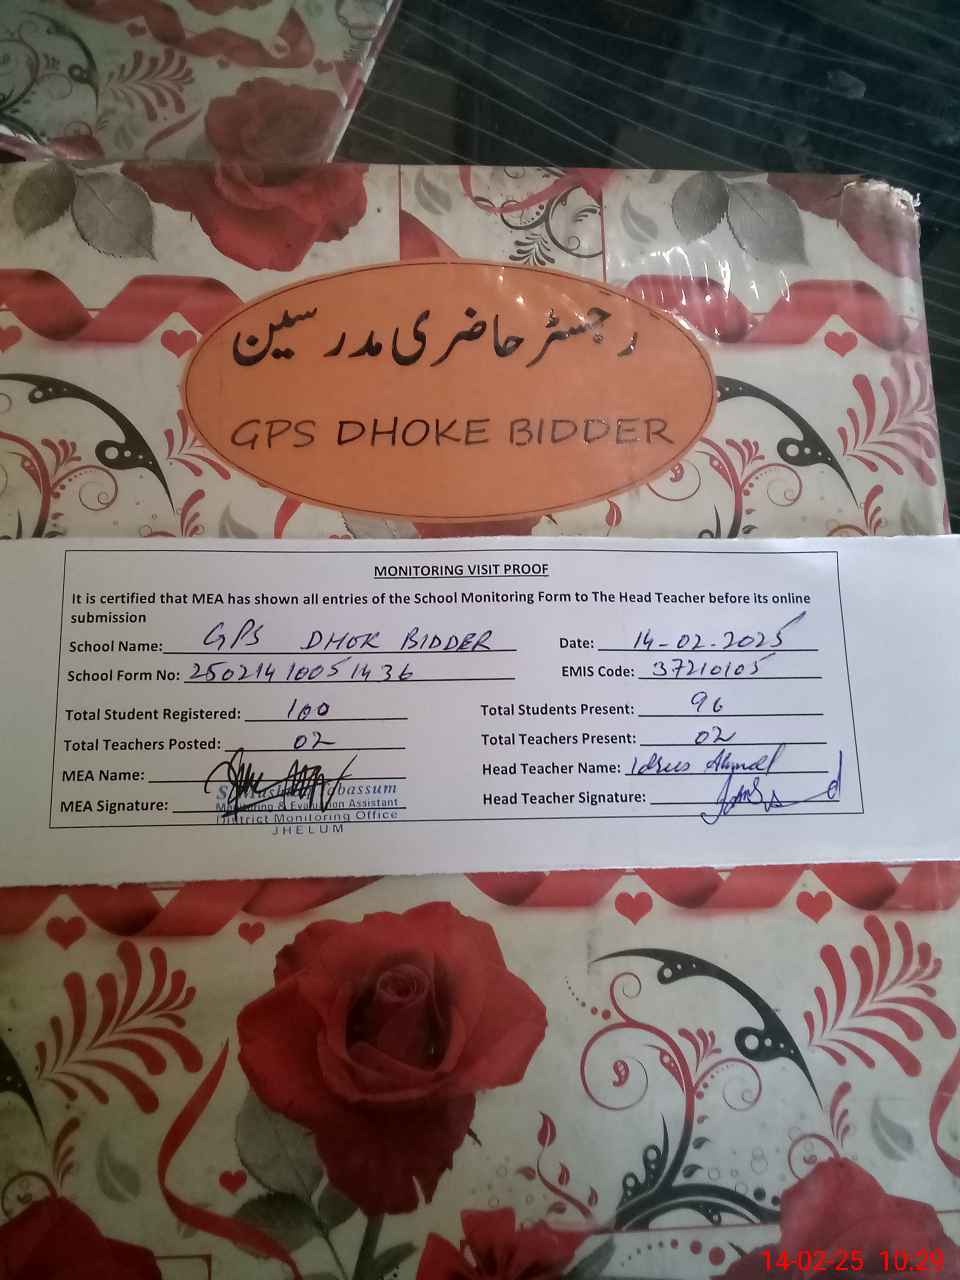 رجسٹر حاضری مدرسین
GPS DHOKE BIDDER
MONITORING VISIT PROOF
It is certified that MEA has shown all entries of the School Monitoring Form to The Head Teacher before its online
submission
School Name: GPS DHOK BIDDER Date: 14-02-2025
School Form No: 25021410051436 EMIS Code: 37210105
Total Student Registered: 100 Total Students Present: 96
Total Teachers Posted: 02 Total Teachers Present: 02
MEA Name: Head Teacher Name: Idrees Ahmed
MEA Signature: Head Teacher Signature:
Tabassum
Monitoring & Evaluation Assistant
District Monitoring Office
JHELUM
14-02-25 10:29